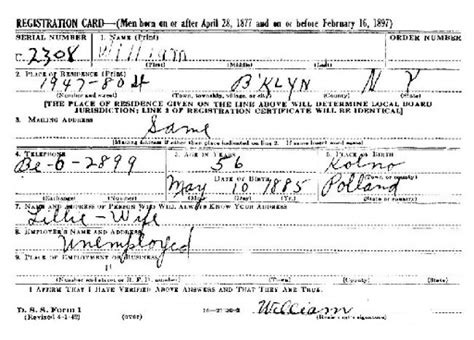 REGISTRATION CARD—(Men born on or after April 28, 1877 and on or before February 16, 1897)
SERIAL NUMBER 1. NAME (Print) ORDER NUMBER
2308 William
2. PLACE OF RESIDENCE (Print)
1947-80 B'KLYN N Y
(Number and street) (Town, township, village, or city) (County) (State)
[THE PLACE OF RESIDENCE GIVEN ON THE LINE ABOVE WILL DETERMINE LOCAL BOARD
JURISDICTION; LINE 2 OF REGISTRATION CERTIFICATE WILL BE IDENTICAL]
3. MAILING ADDRESS
Same
[Mailing address if other than place indicated on line 2. If same insert word same]
4. TELEPHONE 5. AGE IN YEARS 6. PLACE OF BIRTH
Be-6-2899 56 Kolno
DATE OF BIRTH (Town or county)
May 10 1885 Polland
(Exchange) (Number) (Mo.) (Day) (Yr.) (State or country)
7. NAME AND ADDRESS OF PERSON WHO WILL ALWAYS KNOW YOUR ADDRESS
Lillie-Wife
8. EMPLOYER'S NAME AND ADDRESS
Unemployed
9. PLACE OF EMPLOYMENT OR BUSINESS
(Number and street or R. F. D. number) (Town) (County) (State)
I AFFIRM THAT I HAVE VERIFIED ABOVE ANSWERS AND THAT THEY ARE TRUE.
D. S. S. Form 1 William
(Revised 4-1-42) (over) (Registrant's signature)